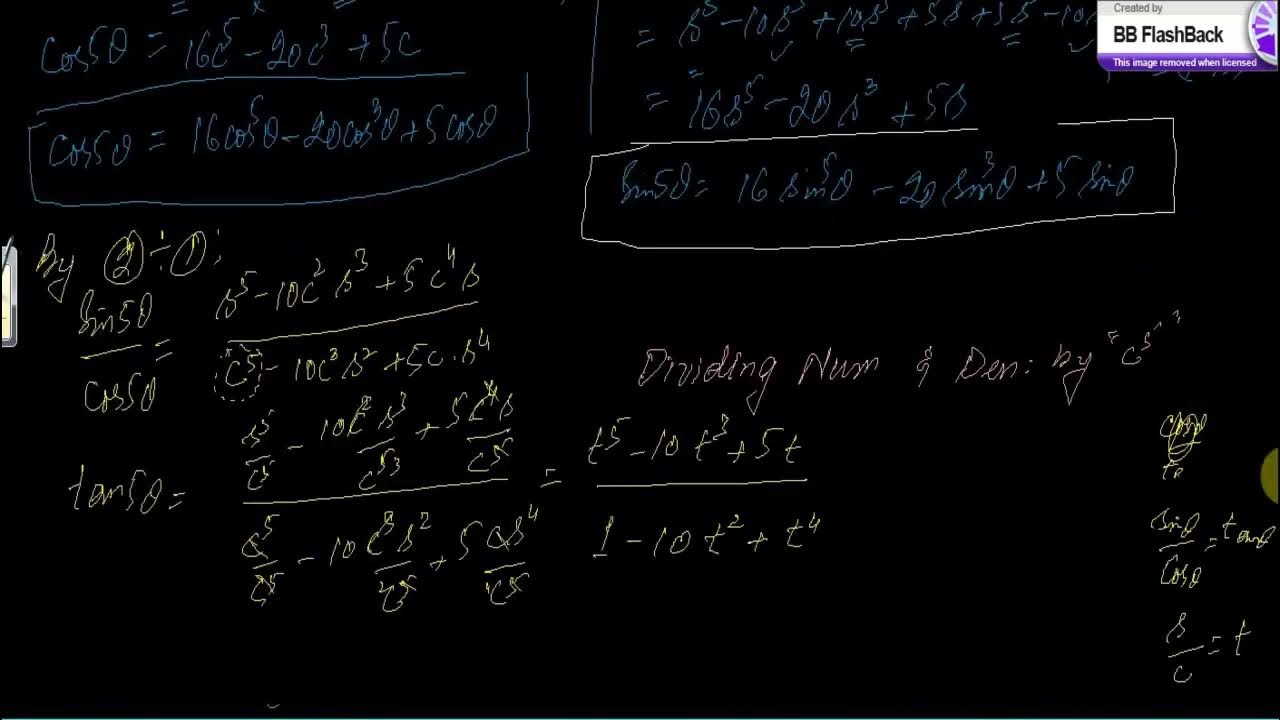 cos5θ = 16c⁵ - 20c³ + 5c
cos5θ = 16cos⁵θ - 20cos³θ + 5cosθ
= s⁵ - 10s³ + 10s⁵ + 5s + 5s⁵ - 10
= 16s⁵ - 20s³ + 5s
sin5θ = 16 sin⁵θ - 20 sin³θ + 5 sinθ
Created by
BB FlashBack
This image removed when licensed
By ② ÷ ① :
sin5θ / cos5θ = (s⁵ - 10c²s³ + 5c⁴s) / (c⁵ - 10c³s² + 5c.s⁴)
Dividing Num & Den: by "c⁵"
tan5θ = (s⁵/c⁵ - 10c²s³/c⁵³ + 5c⁴s/c⁵) / (c⁵/c⁵ - 10c³s²/c⁵ + 5cs⁴/c⁵) = (t⁵ - 10t³ + 5t) / (1 - 10t² + t⁴)
sinθ / cosθ = tanθ
s / c = t